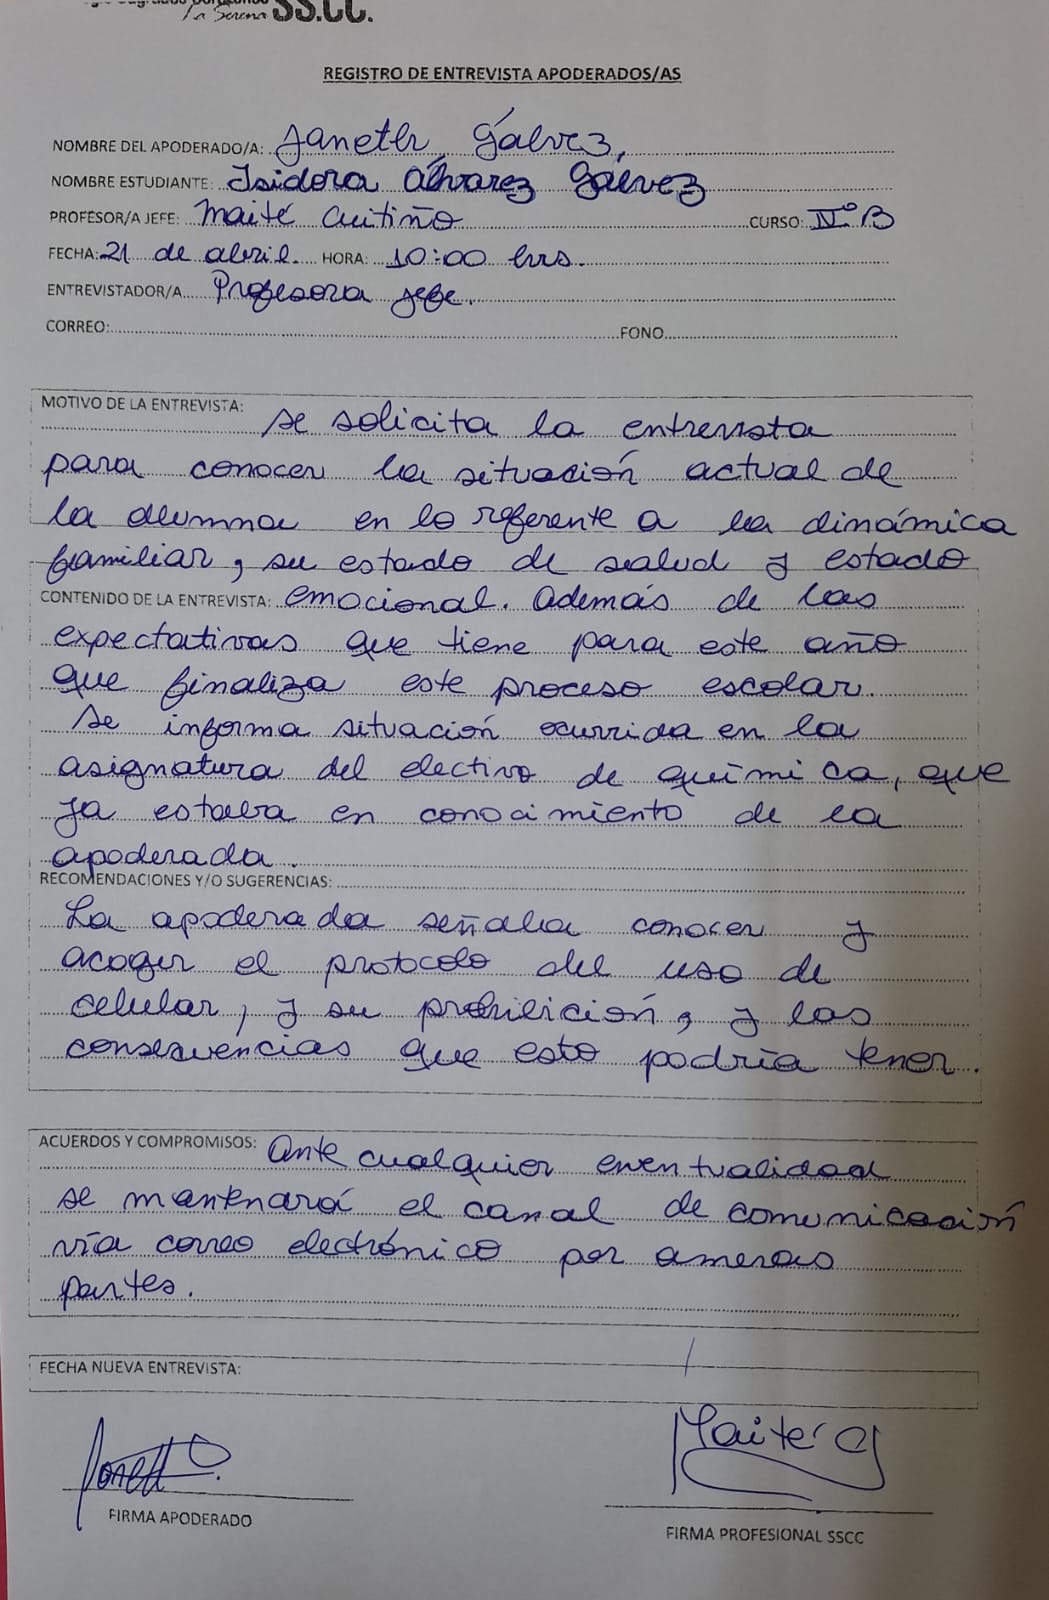 La Serena SS.CC.
REGISTRO DE ENTREVISTA APODERADOS/AS
NOMBRE DEL APODERADO/A: Janeth Gálvez,
NOMBRE ESTUDIANTE: Isidora Álvarez Gálvez
PROFESOR/A JEFE: Maité Cuitiño CURSO: IV°B
FECHA: 21 de abril. HORA: 10:00 hrs.
ENTREVISTADOR/A Profesora jefe.
CORREO: FONO
MOTIVO DE LA ENTREVISTA: Se solicita la entrevista
para conocer la situación actual de
la alumna en lo referente a la dinámica
familiar, su estado de salud y estado
CONTENIDO DE LA ENTREVISTA: emocional. Además de las
expectativas que tiene para este año
que finaliza este proceso escolar.
Se informa situación ocurrida en la
asignatura del electivo de química, que
ya estaba en conocimiento de la
apoderada.
RECOMENDACIONES Y/O SUGERENCIAS:
La apoderada señala conocer y
acoger el protocolo del uso de
celular, y su prohibición, y las
consecuencias que esto podría tener.
ACUERDOS Y COMPROMISOS: Ante cualquier eventualidad
se mantendrá el canal de comunicación
vía correo electrónico por ambas
partes.
FECHA NUEVA ENTREVISTA: /
FIRMA APODERADO
Maite C
FIRMA PROFESIONAL SSCC